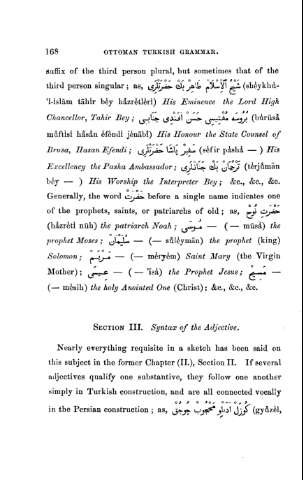 168 OTTOMAN TURKISH GRAMMAR.
suffix of the third person plural, but sometimes that of the
third person singular; as, شَيْخُ ٱلْإِسْلَامِ طَاهِرْ بَكْ حَضْرَتْلَرِى (shéykhŭ-
'l-islām tāhir béy házrétléri) His Eminence the Lord High
Chancellor, Tahir Bey; بُرُوسَه مُفْتِيسِى حَسَنْ اَفَنْدِى جَنَابِى (bŭrŭsă
mŭftisi hăsăn éféndi jénābi) His Honour the State Counsel of
Brusa, Hasan Efendi; سَفِيرْ پَاشَا حَضْرَتْلَرِى (séfir páshá — ) His
Excellency the Pasha Ambassador; تَرْجُمَانْ بَكْ جَنَابْلَرِى (térjŭmān
béy — ) His Worship the Interpreter Bey; &c., &c., &c.
Generally, the word حَضْرَتْ before a single name indicates one
of the prophets, saints, or patriarchs of old; as, حَضْرَتِ نُوحْ
(házréti nūh) the patriarch Noah; — مُوسَى ( — mūsā) the
prophet Moses; — سُلَيْمَانْ (— sŭléymān) the prophet (king)
Solomon; — مَرْيَمْ (— méryém) Saint Mary (the Virgin
Mother); — عِيسَى ( — 'īsā) the Prophet Jesus; — مَسِيحْ
(— mésīh) the holy Anointed One (Christ); &c., &c., &c.
SECTION III. Syntax of the Adjective.
Nearly everything requisite in a sketch has been said on
this subject in the former Chapter (II.), Section II. If several
adjectives qualify one substantive, they follow one another
simply in Turkish construction, and are all connected vocally
in the Persian construction; as, كُوزَلْ اَدَبْلُو مَحْجُوبْ چُوجُقْ (gyŭzél,